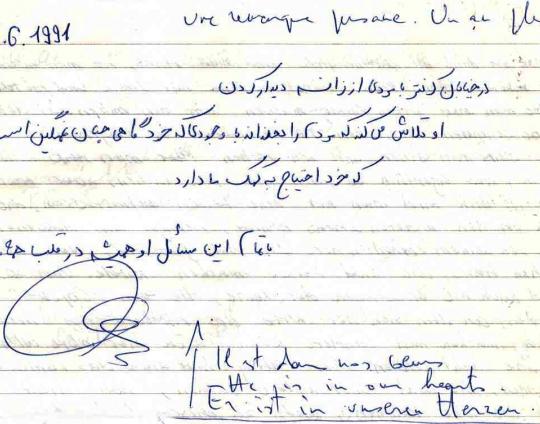 .6.1991
une remarque
در خیابان کنتر با مردی از فرانسه دیدار کردن
او تلاش می کند که مردم را بخنداند با وجودی که خود گاهی چنان غمگین است
که خود احتیاج به کمک ما دارد
با تمام این مسائل او همیشه در قلب
Il est dans nos cœurs
He is in our hearts.
Er ist in unseren Herzen.